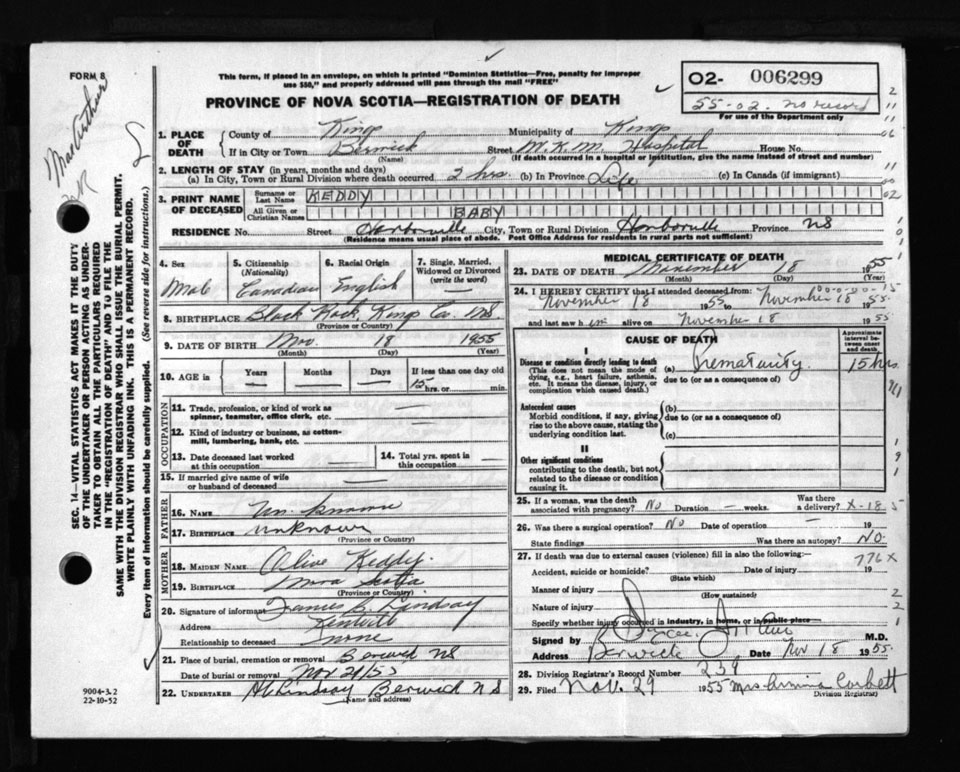 FORM 8
This form, if placed in an envelope, on which is printed "Dominion Statistics—Free, penalty for improper
use $50," and properly addressed will pass through the mail "FREE"
PROVINCE OF NOVA SCOTIA—REGISTRATION OF DEATH
O2- 006299
55-02. no record
For use of the Department only
MacArthur
SEC. 14—VITAL STATISTICS ACT MAKES IT THE DUTY
OF THE UNDERTAKER OR PERSON ACTING AS UNDER-
TAKER TO OBTAIN ALL THE PARTICULARS REQUIRED
IN THE "REGISTRATION OF DEATH" AND TO FILE THE
SAME WITH THE DIVISION REGISTRAR WHO SHALL ISSUE THE BURIAL PERMIT.
WRITE PLAINLY WITH UNFADING INK. THIS IS A PERMANENT RECORD.
Every item of information should be carefully supplied. (See reverse side for instructions.)
1. PLACE OF DEATH
County of Kings Municipality of Kings
If in City or Town Berwick Street W.K.M. Hospital House No.
(Name) (If death occurred in a hospital or institution, give the name instead of street and number)
2. LENGTH OF STAY (in years, months and days)
(a) In City, Town or Rural Division where death occurred 2 hrs. (b) In Province Life (c) In Canada (if immigrant)
3. PRINT NAME OF DECEASED
Surname or Last Name KEDDY
All Given or Christian Names BABY
RESIDENCE No. Street Harborville City, Town or Rural Division Harborville Province NS
(Residence means usual place of abode. Post Office Address for residents in rural parts not sufficient)
4. Sex Male
5. Citizenship (Nationality) Canadian
6. Racial Origin English
7. Single, Married, Widowed or Divorced (write the word) —
8. BIRTHPLACE Black Rock, Kings Co. NS
(Province or Country)
9. DATE OF BIRTH Nov. 18 1955
(Month) (Day) (Year)
10. AGE in Years — Months — Days — If less than one day old 15 hrs. or min.
OCCUPATION
11. Trade, profession, or kind of work as spinner, teamster, office clerk, etc. —
12. Kind of industry or business, as cotton-mill, lumbering, bank, etc. —
13. Date deceased last worked at this occupation —
14. Total yrs. spent in this occupation —
15. If married give name of wife or husband of deceased —
FATHER
16. NAME Unknown
17. BIRTHPLACE unknown
(Province or Country)
MOTHER
18. MAIDEN NAME Olive Keddy
19. BIRTHPLACE Nova Scotia
(Province or Country)
20. Signature of informant Lindsay
Address Kentville
Relationship to deceased none
21. Place of burial, cremation or removal Berwick NS
Date of burial or removal Nov 21/55
22. UNDERTAKER Lindsay Berwick NS
(Name and address)
9004-3.2
22-10-52
MEDICAL CERTIFICATE OF DEATH
23. DATE OF DEATH November 18 1955
(Month) (Day) (Year)
24. I HEREBY CERTIFY that I attended deceased from:
November 18 1955 to November 18 1955
and last saw him alive on November 18 1955
CAUSE OF DEATH
Approximate interval between onset and death.
I
Disease or condition directly leading to death
(This does not mean the mode of dying, e.g., heart failure, asthenia, etc. It means the disease, injury, or complication which caused death.)
(a) Prematurity. 15 hrs
due to (or as a consequence of)
Antecedent causes
Morbid conditions, if any, giving rise to the above cause, stating the underlying condition last.
(b)
due to (or as a consequence of)
(c)
II
Other significant conditions
contributing to the death, but not related to the disease or condition causing it.
25. If a woman, was the death associated with pregnancy? No Duration — weeks. Was there a delivery? X-18
26. Was there a surgical operation? No Date of operation — 19
State findings Was there an autopsy? No.
27. If death was due to external causes (violence) fill in also the following:—
776X
Accident, suicide or homicide? Date of injury 19
(State which)
Manner of injury
(How sustained)
Nature of injury
Specify whether injury occurred in industry, in home, or in public place
Signed by M.D.
Address Berwick Date Nov 18 1955
28. Division Registrar's Record Number 239
29. Filed Nov. 29 1955 Mrs Corbett
(Division Registrar)